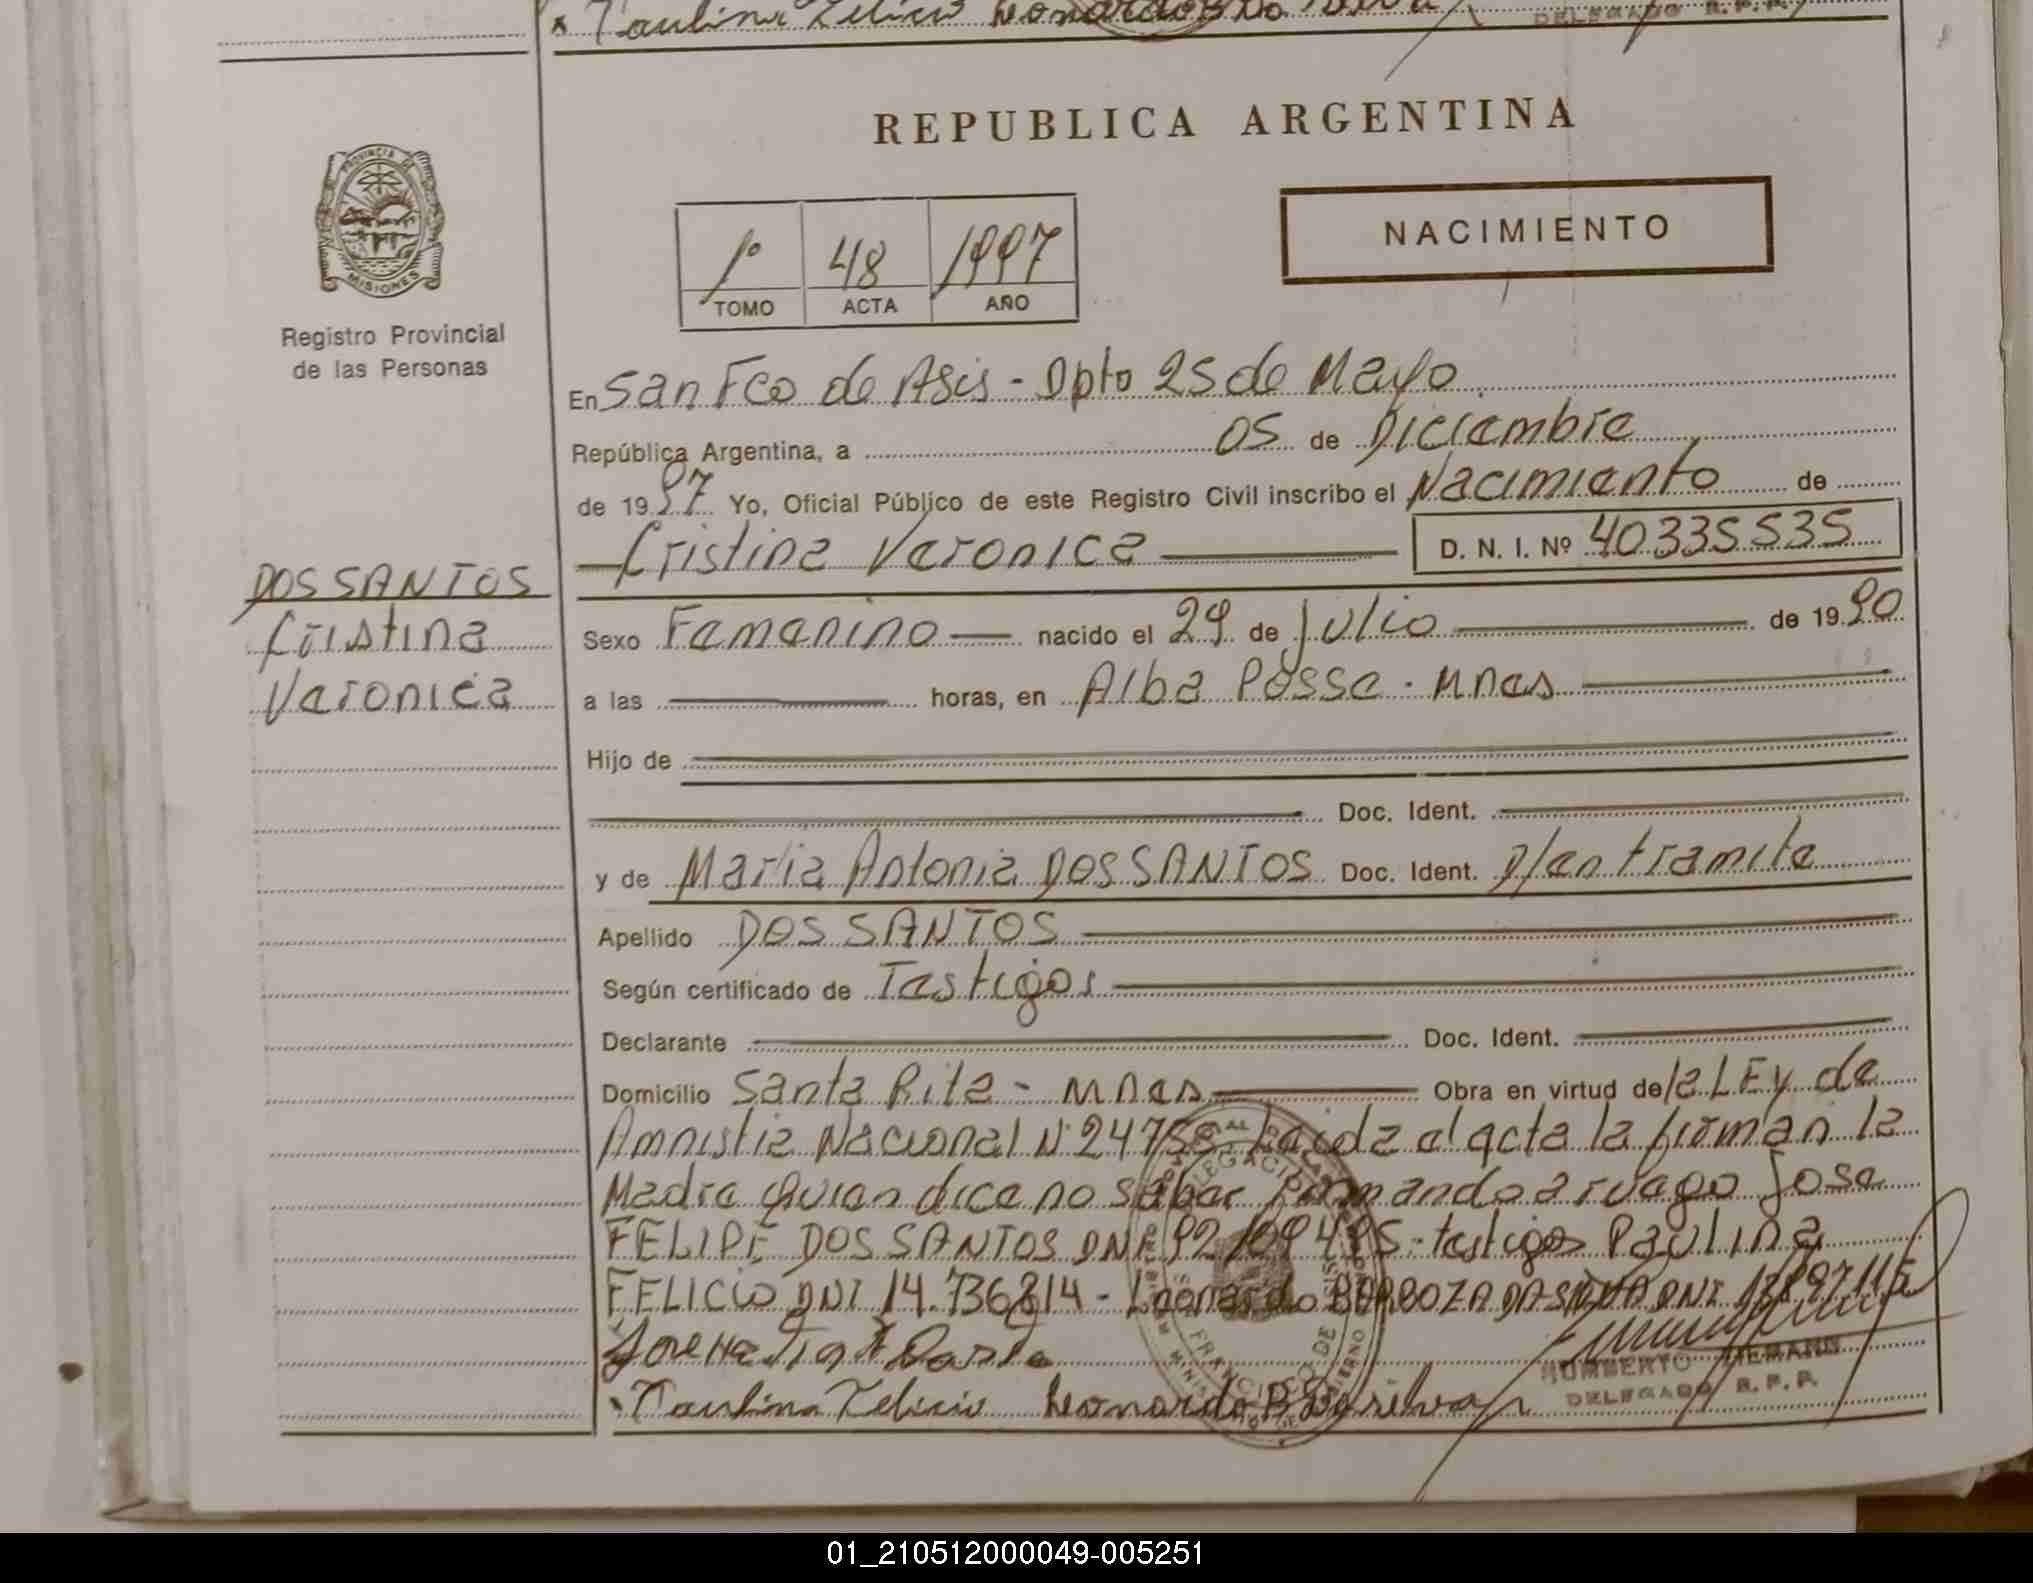 Paulina Felicio Leonardo B Da Silva
DELEGADO R.P.P.
REPUBLICA ARGENTINA
PROVINCIA DE MISIONES
Registro Provincial
de las Personas
1º 48 1997
TOMO ACTA AÑO
NACIMIENTO
En San Fco de Asis - Dpto 25 de Mayo
República Argentina, a 05 de Diciembre
de 1997 Yo, Oficial Público de este Registro Civil inscribo el Nacimiento de
Cristina Veronica D. N. I. Nº 40335535
DOS SANTOS
Cristina
Veronica
Sexo Femenino nacido el 29 de Julio de 1990
a las horas, en Alba Posse - Mnes
Hijo de
Doc. Ident.
y de Maria Antonia DOS SANTOS Doc. Ident. D/en tramite
Apellido DOS SANTOS
Según certificado de Testigos
Declarante Doc. Ident.
Domicilio Santa Rita - Mnes Obra en virtud de la LEy de
Amnistia Nacional Nº 24755 Leida el acta la firman la
Madre quien dice no saber firmando a ruego Jose
FELIPE DOS SANTOS DNI - testigos Paulina
FELICIO DNI 14.736814 - Leonardo BARBOZA DA SILVA DNI
Paulina Felicio Leonardo B Da silva
HUMBERTO
DELEGADO R.P.P.
01_210512000049-005251